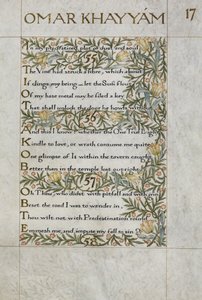 OMAR KHAYYÁM 17
In my predestined plot of dust and soul
55
The Vine had struck a fibre, which about
If clings my being — let the Sufi flout
Of my base metal may be filed a key
That shall unlock the door he howls without
56
And this I know: whether the One True Light
Kindle to love, or wrath consume me quite
One glimpse of It within the tavern caught
Better than in the temple lost outright
57
Oh Thou, who didst with pitfall and with gin
Beset the road I was to wander in,
Thou wilt not with Predestination round
Enmesh me, and impute my fall to sin?
58